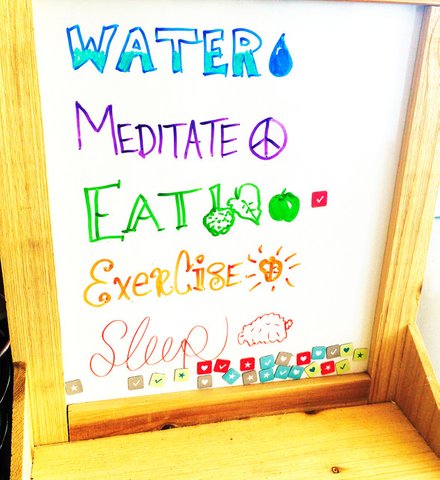 WATER
MEDITATE
EAT
ExerCise
Sleep